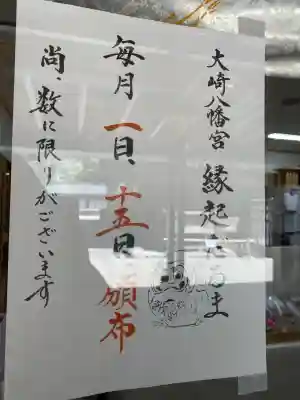 大崎八幡宮 縁起だるま
毎月 一日 十五日 頒布
尚、数に限りがございます